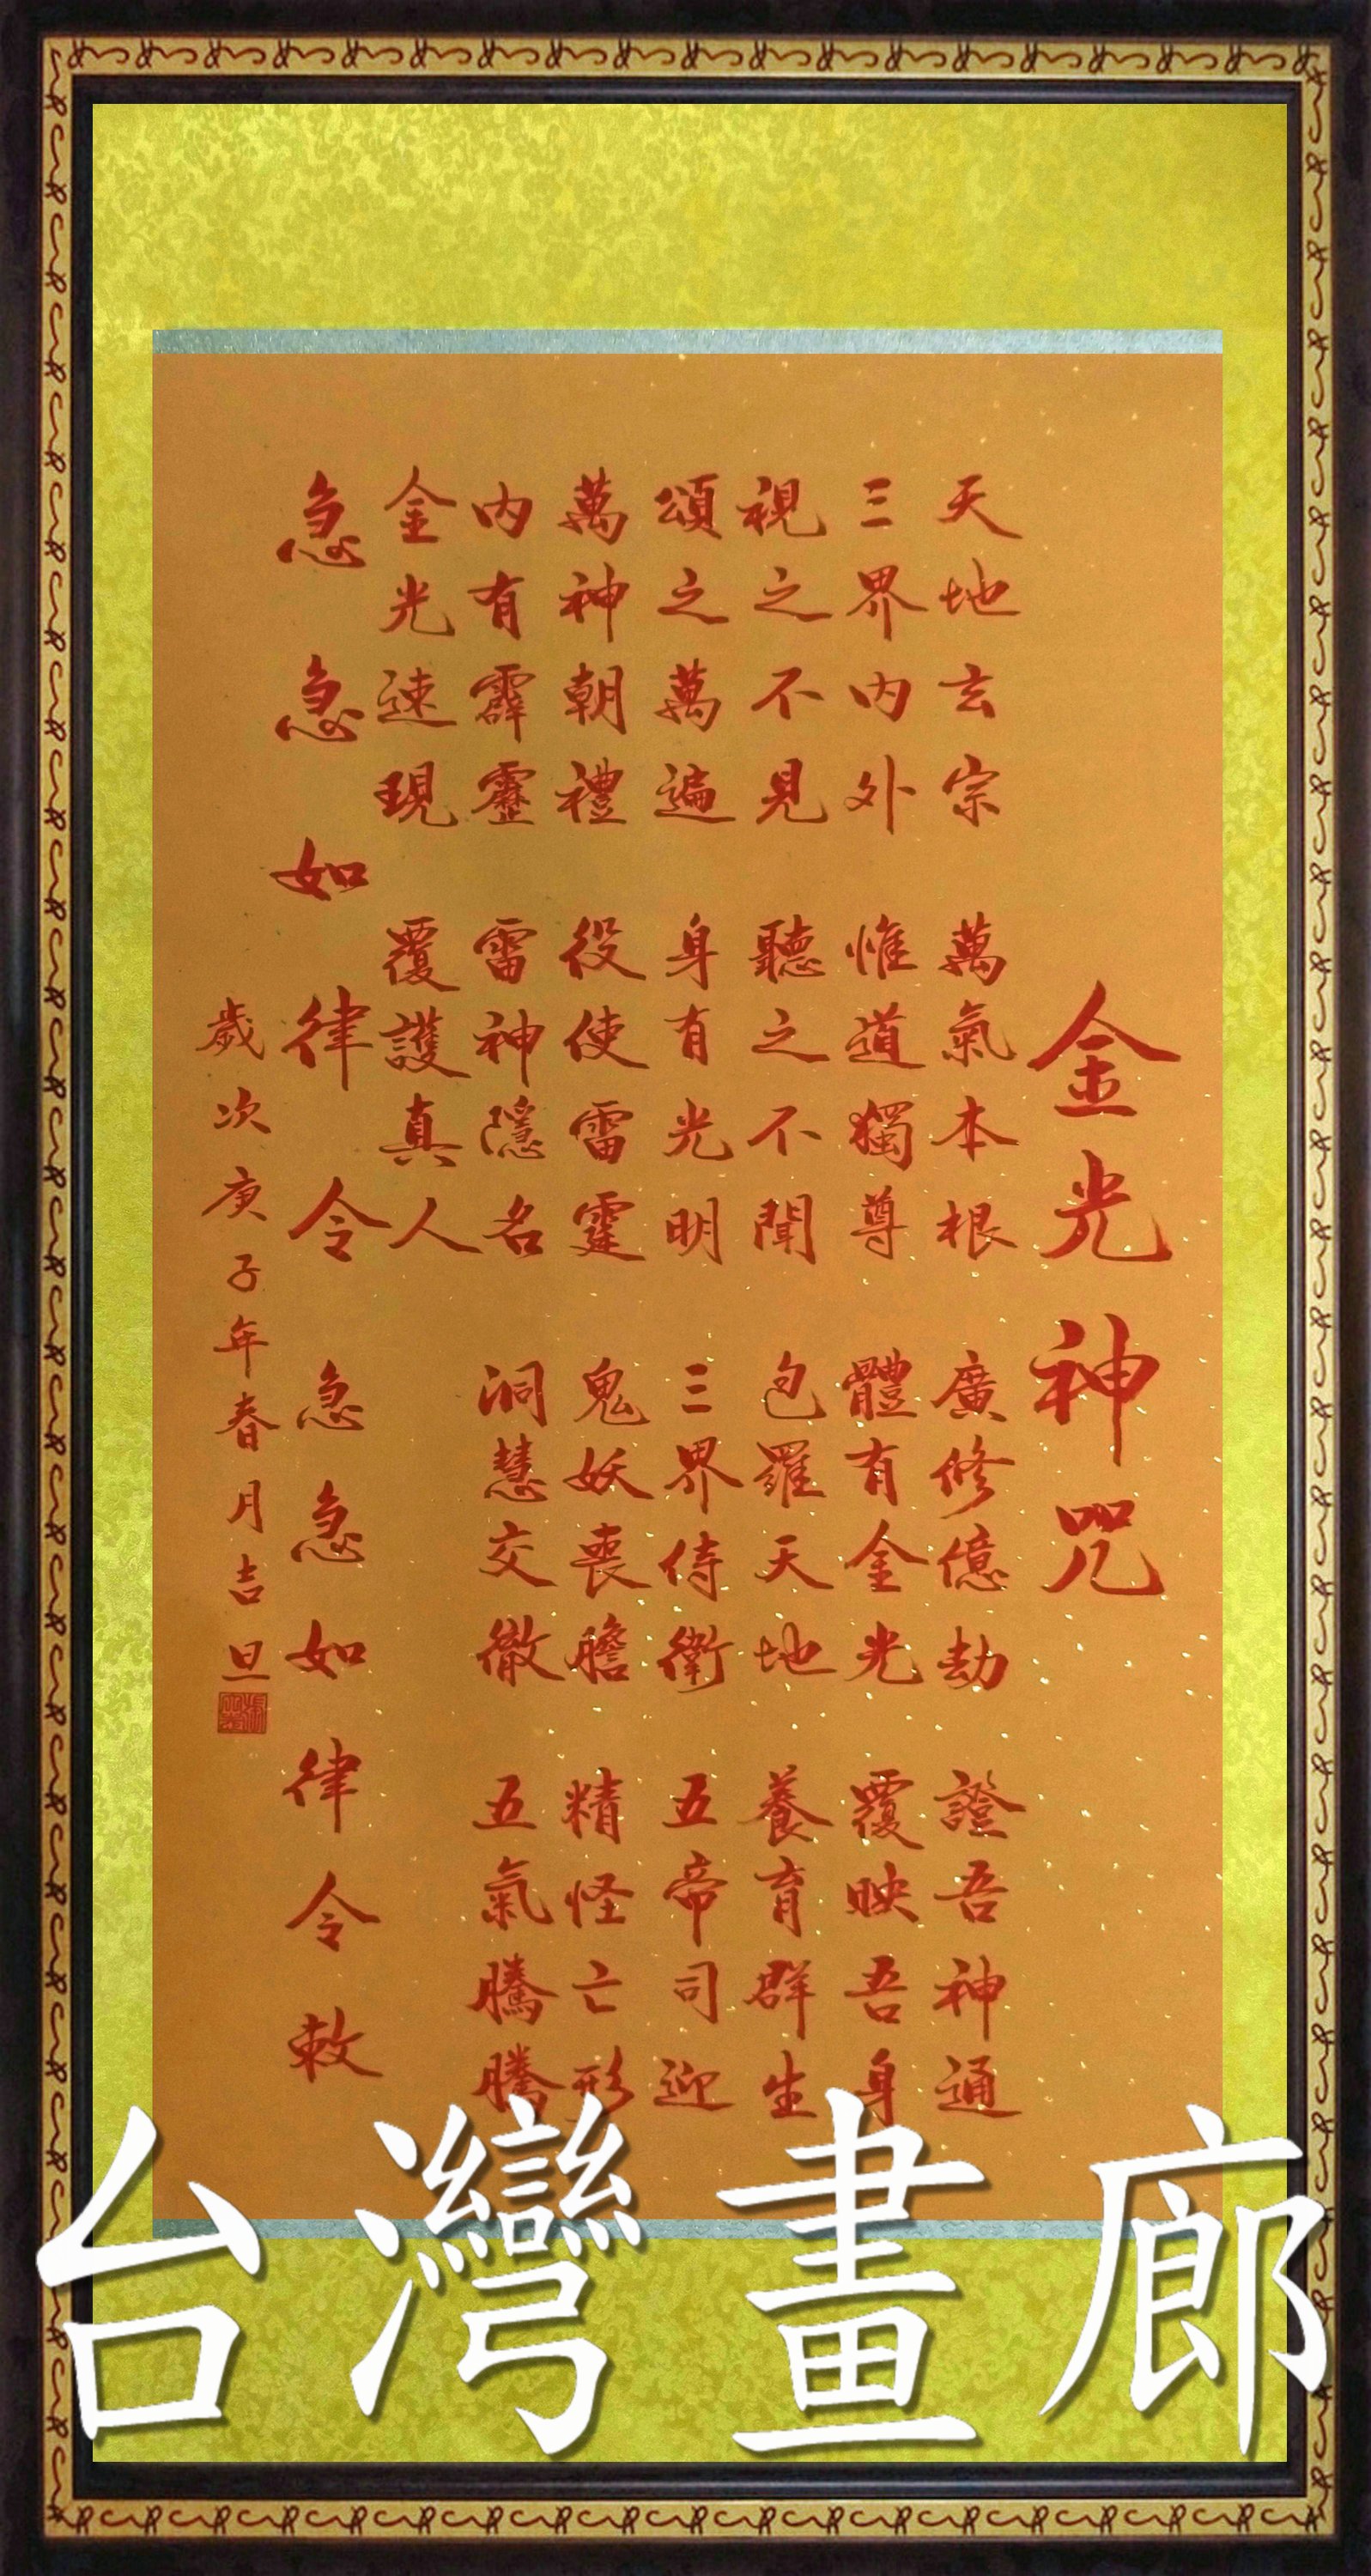 金光神咒
天地玄宗 萬氣本根 廣修億劫 證吾神通
三界內外 惟道獨尊 體有金光 覆映吾身
視之不見 聽之不聞 包羅天地 養育群生
頌之萬遍 身有光明 三界侍衛 五帝司迎
萬神朝禮 役使雷霆 鬼妖喪膽 精怪亡形
內有霹靂 雷神隱名 洞慧交徹 五氣騰騰
金光速現 覆護真人
急急如律令 急急如律令敕
歲次庚子年春月吉旦
台灣畫廊